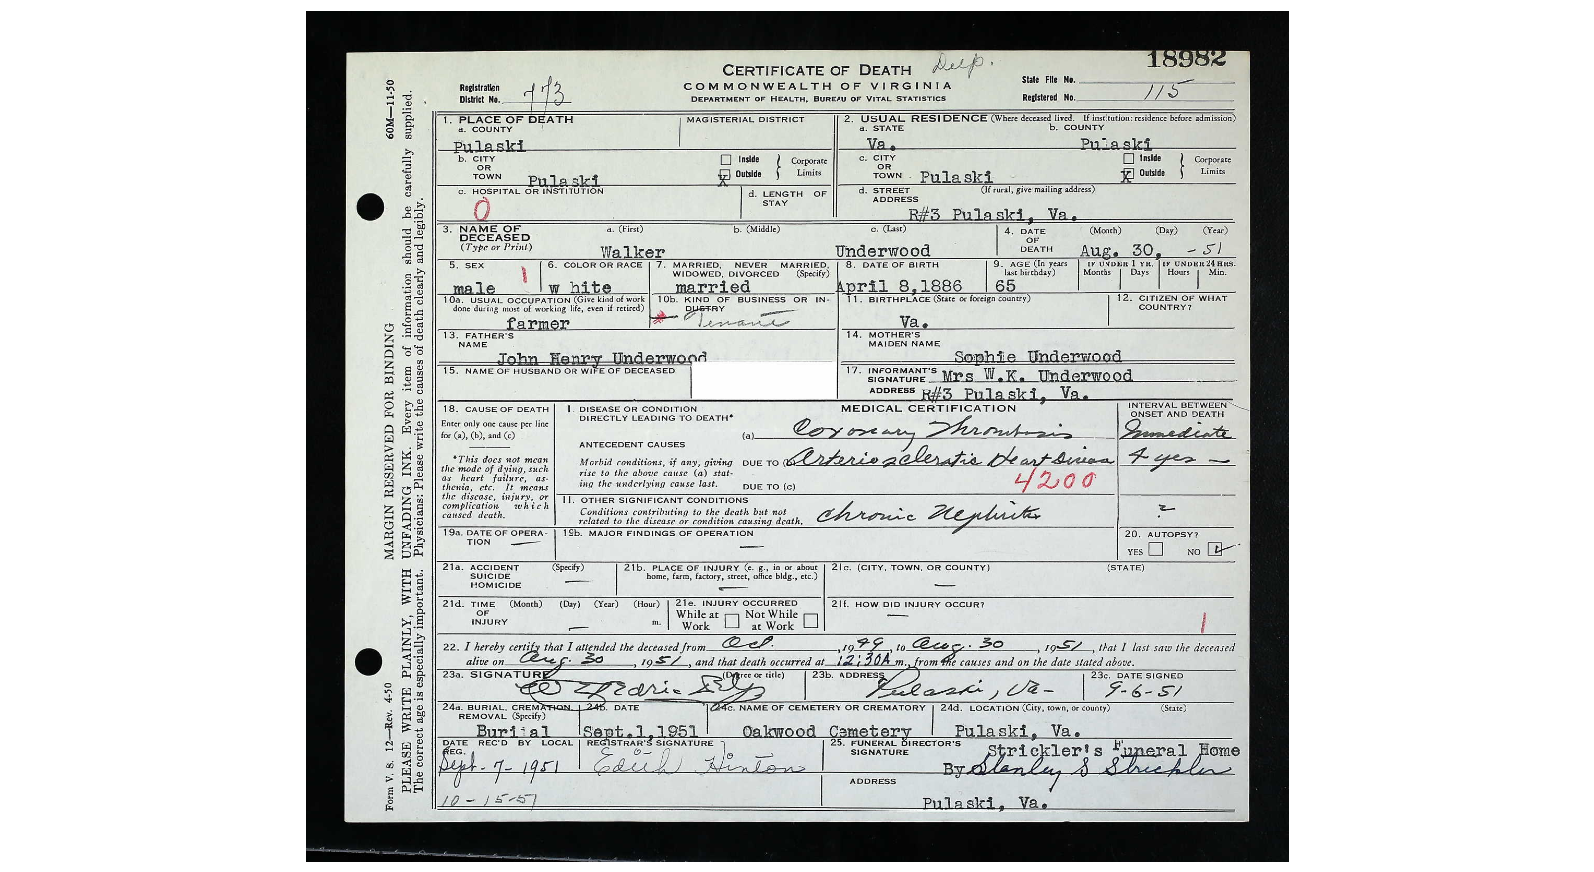 18982
CERTIFICATE OF DEATH Delp.
COMMONWEALTH OF VIRGINIA
DEPARTMENT OF HEALTH, BUREAU OF VITAL STATISTICS
Registration District No. 773
State File No.
Registered No. 115
60M—11-50
MARGIN RESERVED FOR BINDING
Form V. S. 12—Rev. 4-50
PLEASE WRITE PLAINLY, WITH UNFADING INK. Every item of information should be carefully supplied.
The correct age is especially important. Physicians: Please write the causes of death clearly and legibly.
1. PLACE OF DEATH
a. COUNTY
Pulaski
MAGISTERIAL DISTRICT
b. CITY OR TOWN Pulaski
Inside
X Outside
Corporate Limits
c. HOSPITAL OR INSTITUTION
0
d. LENGTH OF STAY
2. USUAL RESIDENCE (Where deceased lived. If institution: residence before admission)
a. STATE
Va.
b. COUNTY
Pulaski
c. CITY OR TOWN Pulaski
Inside
X Outside
Corporate Limits
d. STREET ADDRESS (If rural, give mailing address)
R#3 Pulaski, Va.
3. NAME OF DECEASED (Type or Print)
a. (First)
b. (Middle)
c. (Last)
Walker Underwood
4. DATE OF DEATH
(Month) (Day) (Year)
Aug. 30, - 51
5. SEX
male
1
6. COLOR OR RACE
w hite
7. MARRIED, NEVER MARRIED, WIDOWED, DIVORCED (Specify)
married
8. DATE OF BIRTH
April 8,1886
9. AGE (In years last birthday)
65
IF UNDER 1 YR. Months Days
IF UNDER 24 HRS. Hours Min.
10a. USUAL OCCUPATION (Give kind of work done during most of working life, even if retired)
farmer
10b. KIND OF BUSINESS OR INDUSTRY
Tenant
11. BIRTHPLACE (State or foreign country)
Va.
12. CITIZEN OF WHAT COUNTRY?
13. FATHER'S NAME
John Henry Underwood
14. MOTHER'S MAIDEN NAME
Sophie Underwood
15. NAME OF HUSBAND OR WIFE OF DECEASED
17. INFORMANT'S SIGNATURE Mrs W.K. Underwood
ADDRESS R#3 Pulaski, Va.
18. CAUSE OF DEATH
Enter only one cause per line for (a), (b), and (c)
*This does not mean the mode of dying, such as heart failure, asthenia, etc. It means the disease, injury, or complication which caused death.
MEDICAL CERTIFICATION
INTERVAL BETWEEN ONSET AND DEATH
I. DISEASE OR CONDITION DIRECTLY LEADING TO DEATH*
(a) Coronary Thrombosis Immediate
ANTECEDENT CAUSES
Morbid conditions, if any, giving rise to the above cause (a) stating the underlying cause last.
DUE TO (b) Arteriosclerotic Heart Disease 4 yes —
DUE TO (c)
4200
II. OTHER SIGNIFICANT CONDITIONS
Conditions contributing to the death but not related to the disease or condition causing death.
Chronic Nephritis ?
19a. DATE OF OPERATION —
19b. MAJOR FINDINGS OF OPERATION
—
20. AUTOPSY?
YES NO
21a. ACCIDENT SUICIDE HOMICIDE (Specify)
—
21b. PLACE OF INJURY (e. g., in or about home, farm, factory, street, office bldg., etc.)
—
21c. (CITY, TOWN, OR COUNTY) (STATE)
—
21d. TIME OF INJURY (Month) (Day) (Year) (Hour) m.
—
21e. INJURY OCCURRED
While at Work Not While at Work
21f. HOW DID INJURY OCCUR?
—
1
22. I hereby certify that I attended the deceased from Oct. , 1949, to Aug. 30 , 1951, that I last saw the deceased
alive on Aug. 30 , 1951, and that death occurred at 12:30A m., from the causes and on the date stated above.
23a. SIGNATURE (Degree or title)
23b. ADDRESS
Pulaski, Va-
23c. DATE SIGNED
9-6-51
24a. BURIAL, CREMATION, REMOVAL (Specify)
Burial
24b. DATE
Sept.1,1951
24c. NAME OF CEMETERY OR CREMATORY
Oakwood Cemetery
24d. LOCATION (City, town, or county) (State)
Pulaski, Va.
DATE REC'D BY LOCAL REG.
Sept. 7-1951
REGISTRAR'S SIGNATURE
Edith Hinton
25. FUNERAL DIRECTOR'S SIGNATURE
Strickler's Funeral Home
By Stanley S Strickler
ADDRESS
Pulaski, Va.
10-15-51